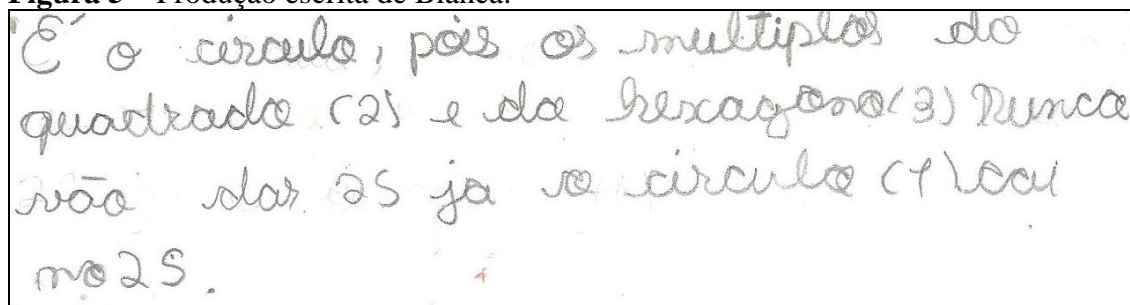 Figura 5 – Produção escrita de Bianca.
É o circulo, pois os multiplos do
quadrado (2) e do hexagono (3) Nunca
vão dar 25 ja o circulo (1) cai
no 25.